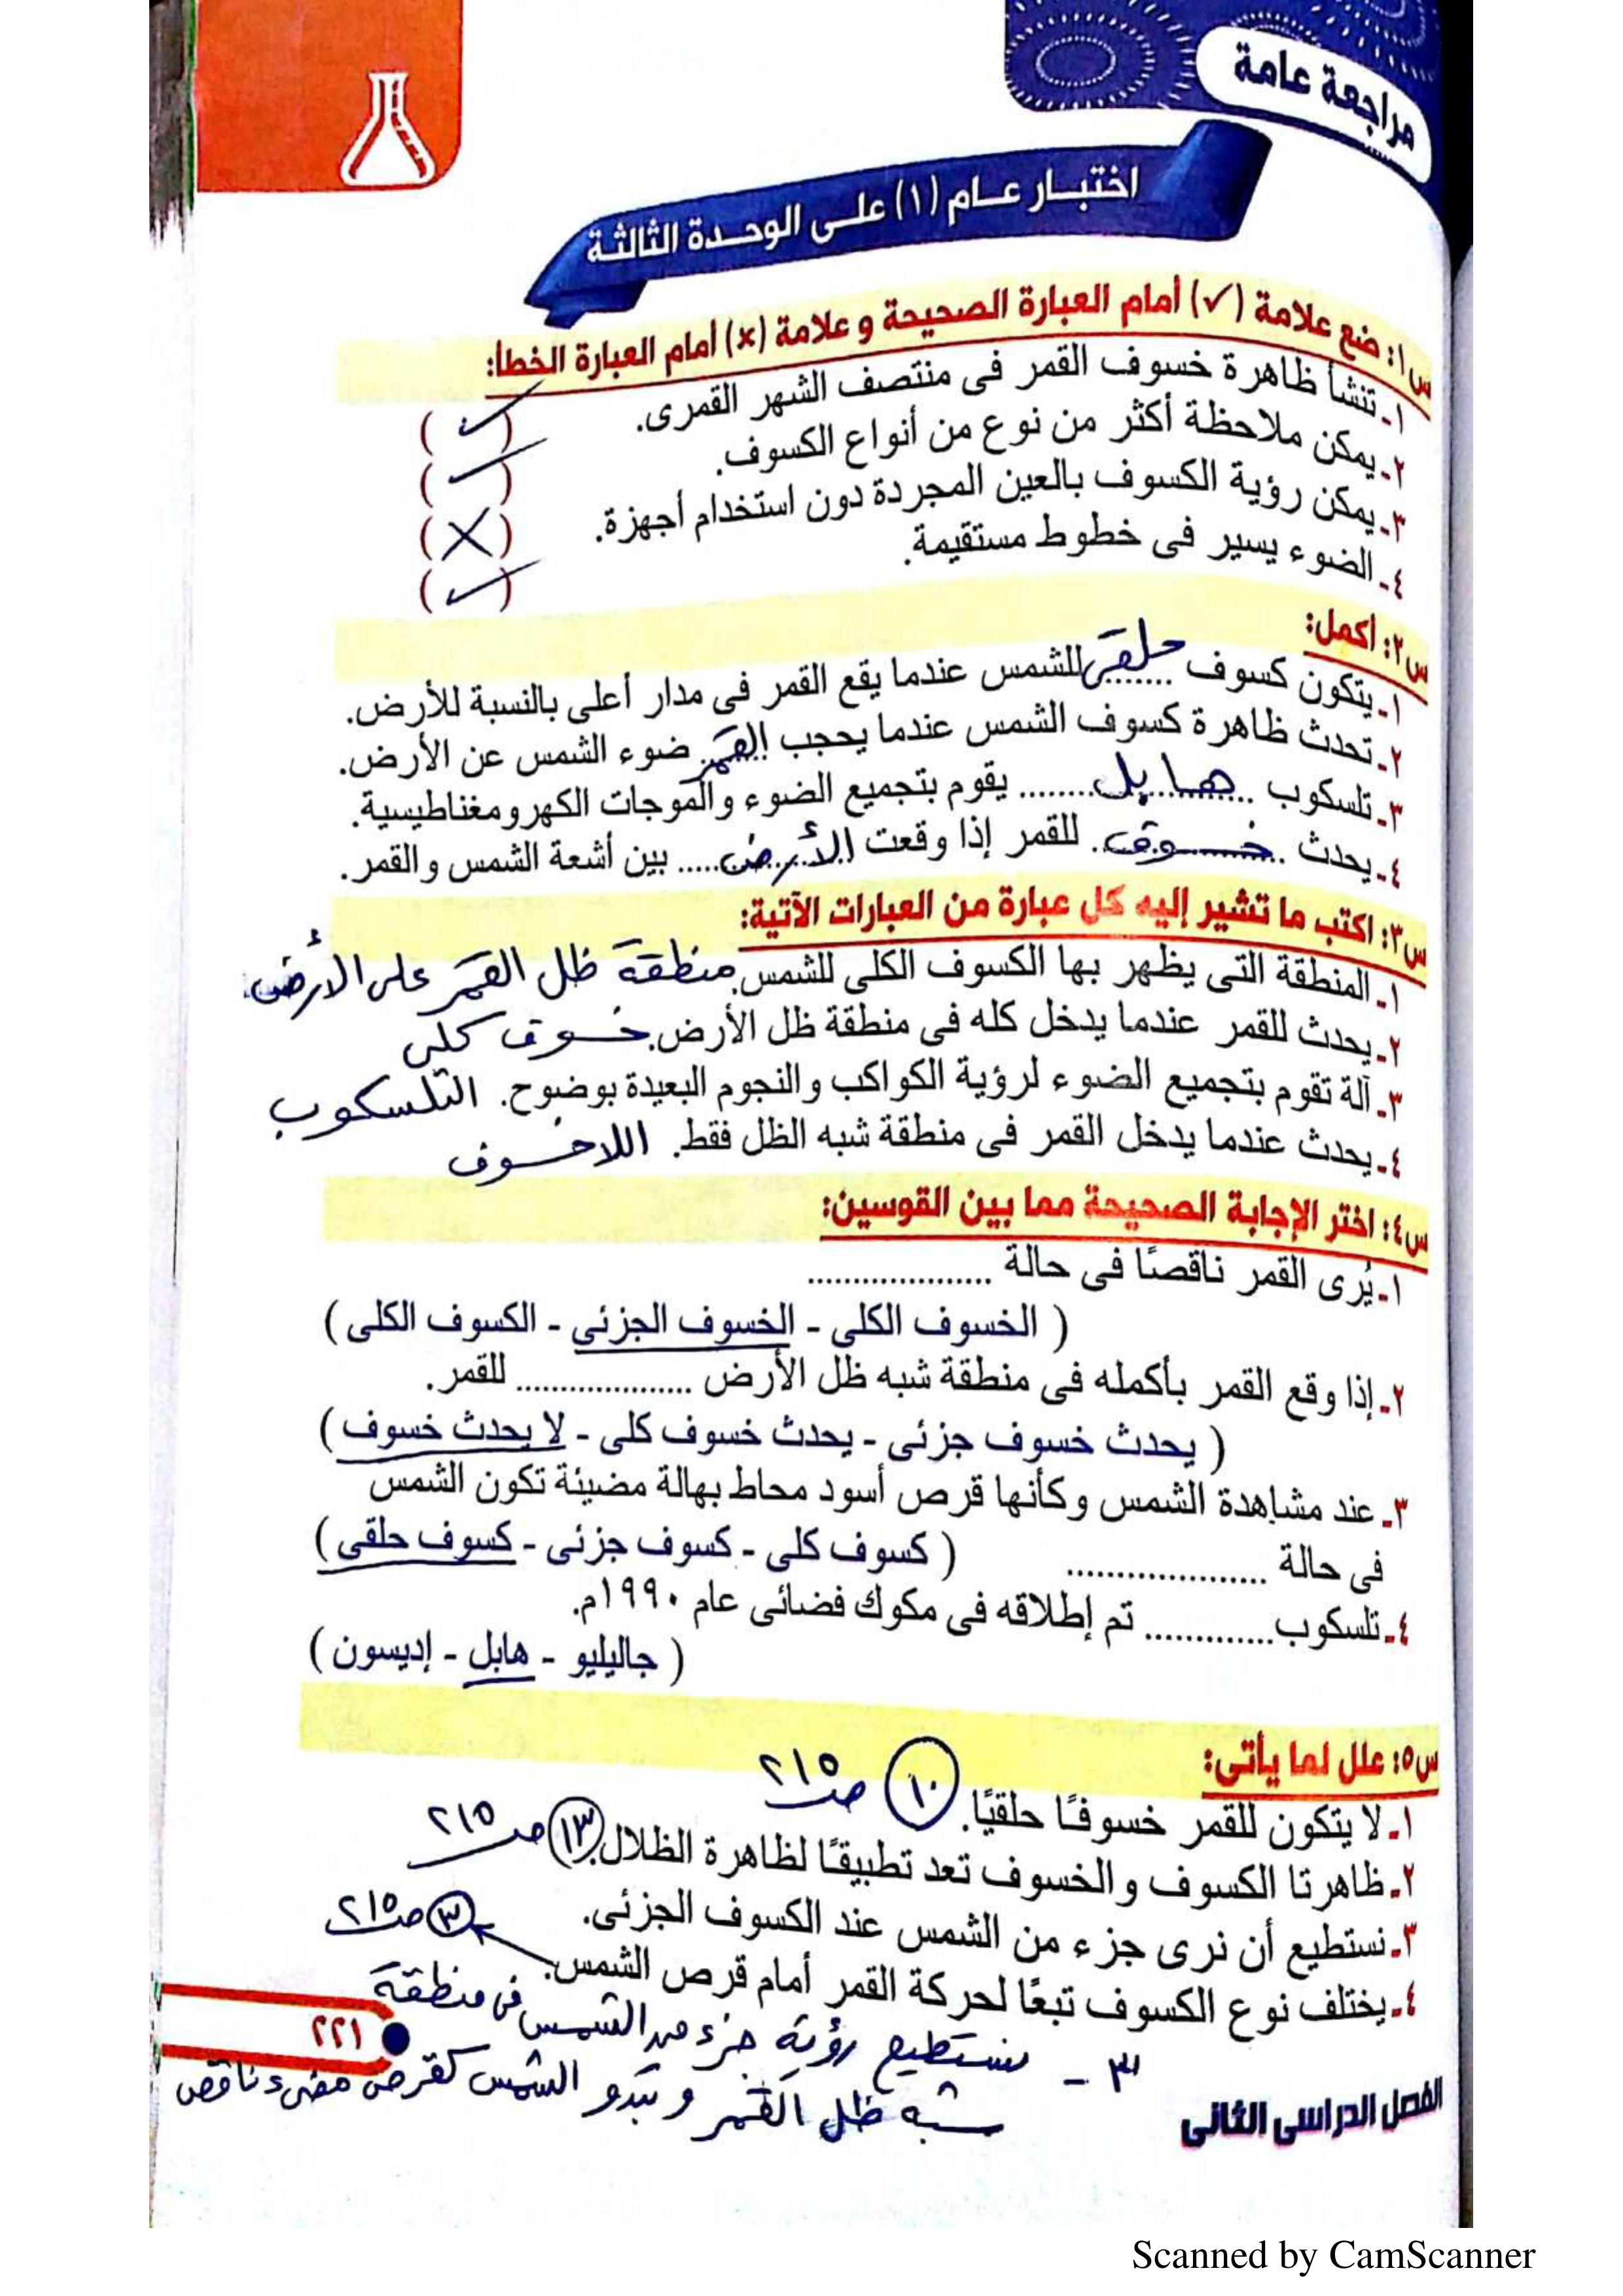 مراجعة عامة
اختبار عام (١) على الوحدة الثالثة
س١: ضع علامة (✓) أمام العبارة الصحيحة و علامة (×) أمام العبارة الخطأ:
١- تنشأ ظاهرة خسوف القمر فى منتصف الشهر القمرى. (✓)
٢- يمكن ملاحظة أكثر من نوع من أنواع الكسوف. (✓)
٣- يمكن رؤية الكسوف بالعين المجردة دون استخدام أجهزة. (×)
٤- الضوء يسير فى خطوط مستقيمة. (✓)
س٢: أكمل:
١- يتكون كسوف حلقى للشمس عندما يقع القمر فى مدار أعلى بالنسبة للأرض.
٢- تحدث ظاهرة كسوف الشمس عندما يحجب القمر ضوء الشمس عن الأرض.
٣- تلسكوب هابل يقوم بتجميع الضوء والموجات الكهرومغناطيسية.
٤- يحدث خسوف للقمر إذا وقعت الأرض بين أشعة الشمس والقمر.
س٣: اكتب ما تشير إليه كل عبارة من العبارات الآتية:
١- المنطقة التى يظهر بها الكسوف الكلى للشمس. منطقة ظل القمر على الأرض
٢- يحدث للقمر عندما يدخل كله فى منطقة ظل الأرض. خسوف كلى
٣- آلة تقوم بتجميع الضوء لرؤية الكواكب والنجوم البعيدة بوضوح. التلسكوب
٤- يحدث عندما يدخل القمر فى منطقة شبه الظل فقط. اللاخسوف
س٤: اختر الإجابة الصحيحة مما بين القوسين:
١- يُرى القمر ناقصًا فى حالة ....................
( الخسوف الكلى - الخسوف الجزئى - الكسوف الكلى )
٢- إذا وقع القمر بأكمله فى منطقة شبه ظل الأرض ................... للقمر.
( يحدث خسوف جزئى - يحدث خسوف كلى - لا يحدث خسوف )
٣- عند مشاهدة الشمس وكأنها قرص أسود محاط بهالة مضيئة تكون الشمس
فى حالة ..................... ( كسوف كلى - كسوف جزئى - كسوف حلقى )
٤- تلسكوب.............. تم إطلاقه فى مكوك فضائى عام ١٩٩٠م.
( جاليليو - هابل - إديسون )
س٥: علل لما يأتى:
١- لا يتكون للقمر خسوفًا حلقيًا. ١٠ ص ٢١٥
٢- ظاهرتا الكسوف والخسوف تعد تطبيقًا لظاهرة الظلال. ١٣ ص ٢١٥
٣- نستطيع أن نرى جزء من الشمس عند الكسوف الجزئى.
٤- يختلف نوع الكسوف تبعًا لحركة القمر أمام قرص الشمس. ٣ ص ٢١٥
٣ - نستطيع رؤية جزء من الشمس فى منطقة
شبه ظل القمر وتبدو الشمس كقرص مضىء ناقص
٢٢١
الفصل الدراسى الثانى
Scanned by CamScanner